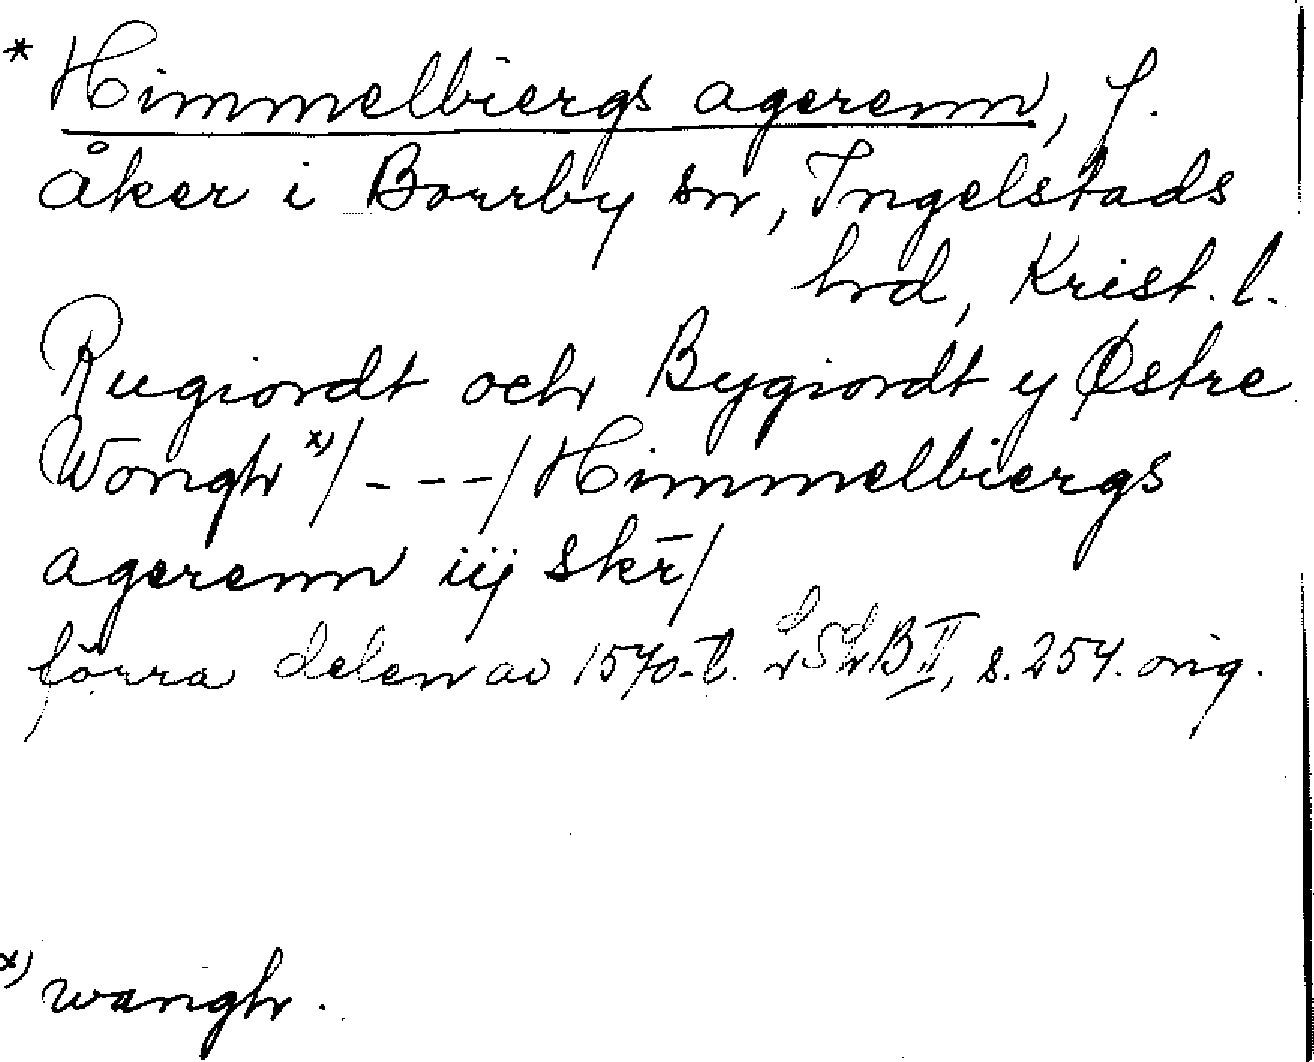 * Himmelbiergs agerenn, f.
åker i Borrby sn, Ingelstads
hrd, Krist. l.
Rugiordt och Bygiordt y Østre
Wongh x)/ - - - / Himmelbiergs
agerenn iij skr̄/
förra delen av 1570-t. LSLB II, s. 254. orig.
x) wangh.